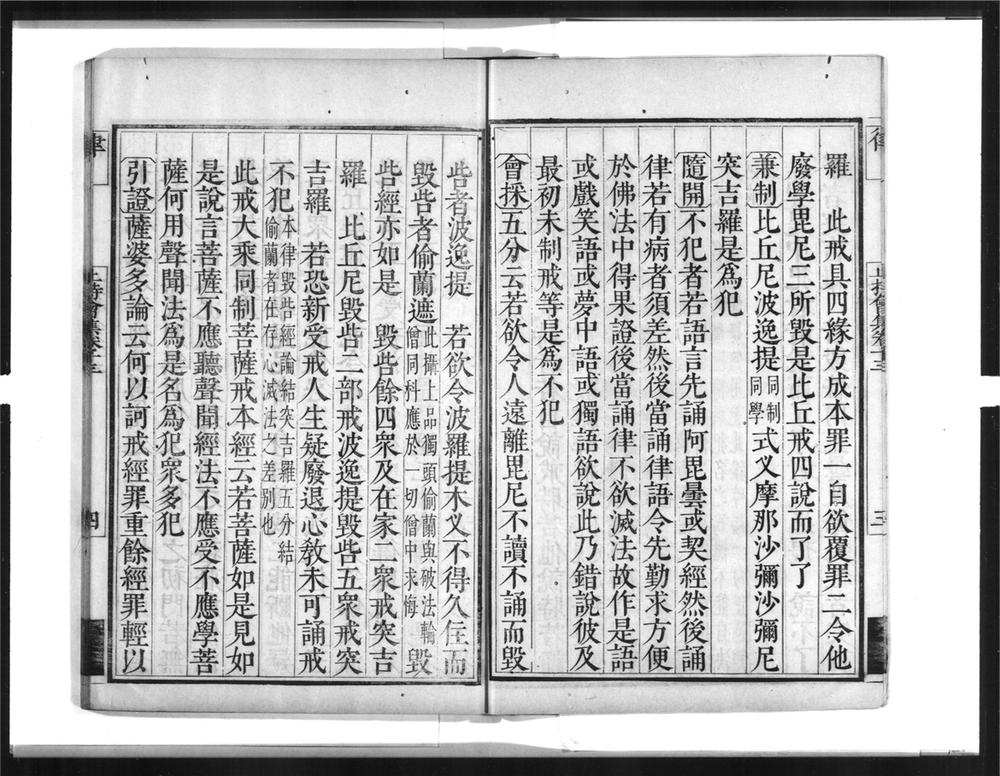 羅　此戒具四緣方成本罪一自欲覆罪二令他
廢學毘尼三所毀是比丘戒四說而了了
兼制比丘尼波逸提同制同學式叉摩那沙彌沙彌尼
突吉羅是爲犯
隨開不犯者若語言先誦阿毘曇或契經然後誦
律若有病者須差然後當誦律語令先勤求方便
於佛法中得果證後當誦律不欲滅法故作是語
或戲笑語或夢中語或獨語欲說此乃錯說彼及
最初未制戒等是爲不犯
會採五分云若欲令人遠離毘尼不讀不誦而毀
呰者波逸提　若欲令波羅提木叉不得久住而
毀呰者偷蘭遮此攝上品獨頭偷蘭與破法輪僧同科應於一切僧中求悔毀
呰經亦如是　毀呰餘四衆及在家二衆戒突吉
羅　比丘尼毀呰二部戒波逸提毀呰五衆戒突
吉羅　若恐新受戒人生疑廢退心教未可誦戒
不犯本律毀呰經論結突吉羅五分結偷蘭者在存心滅法之差別也
此戒大乘同制菩薩戒本經云若菩薩如是見如
是說言菩薩不應聽聲聞經法不應受不應學菩
薩何用聲聞法爲是名爲犯衆多犯
引證薩婆多論云何以訶戒經罪重餘經罪輕以
律
止持會集卷十三
三
律
止持會集卷十三
四